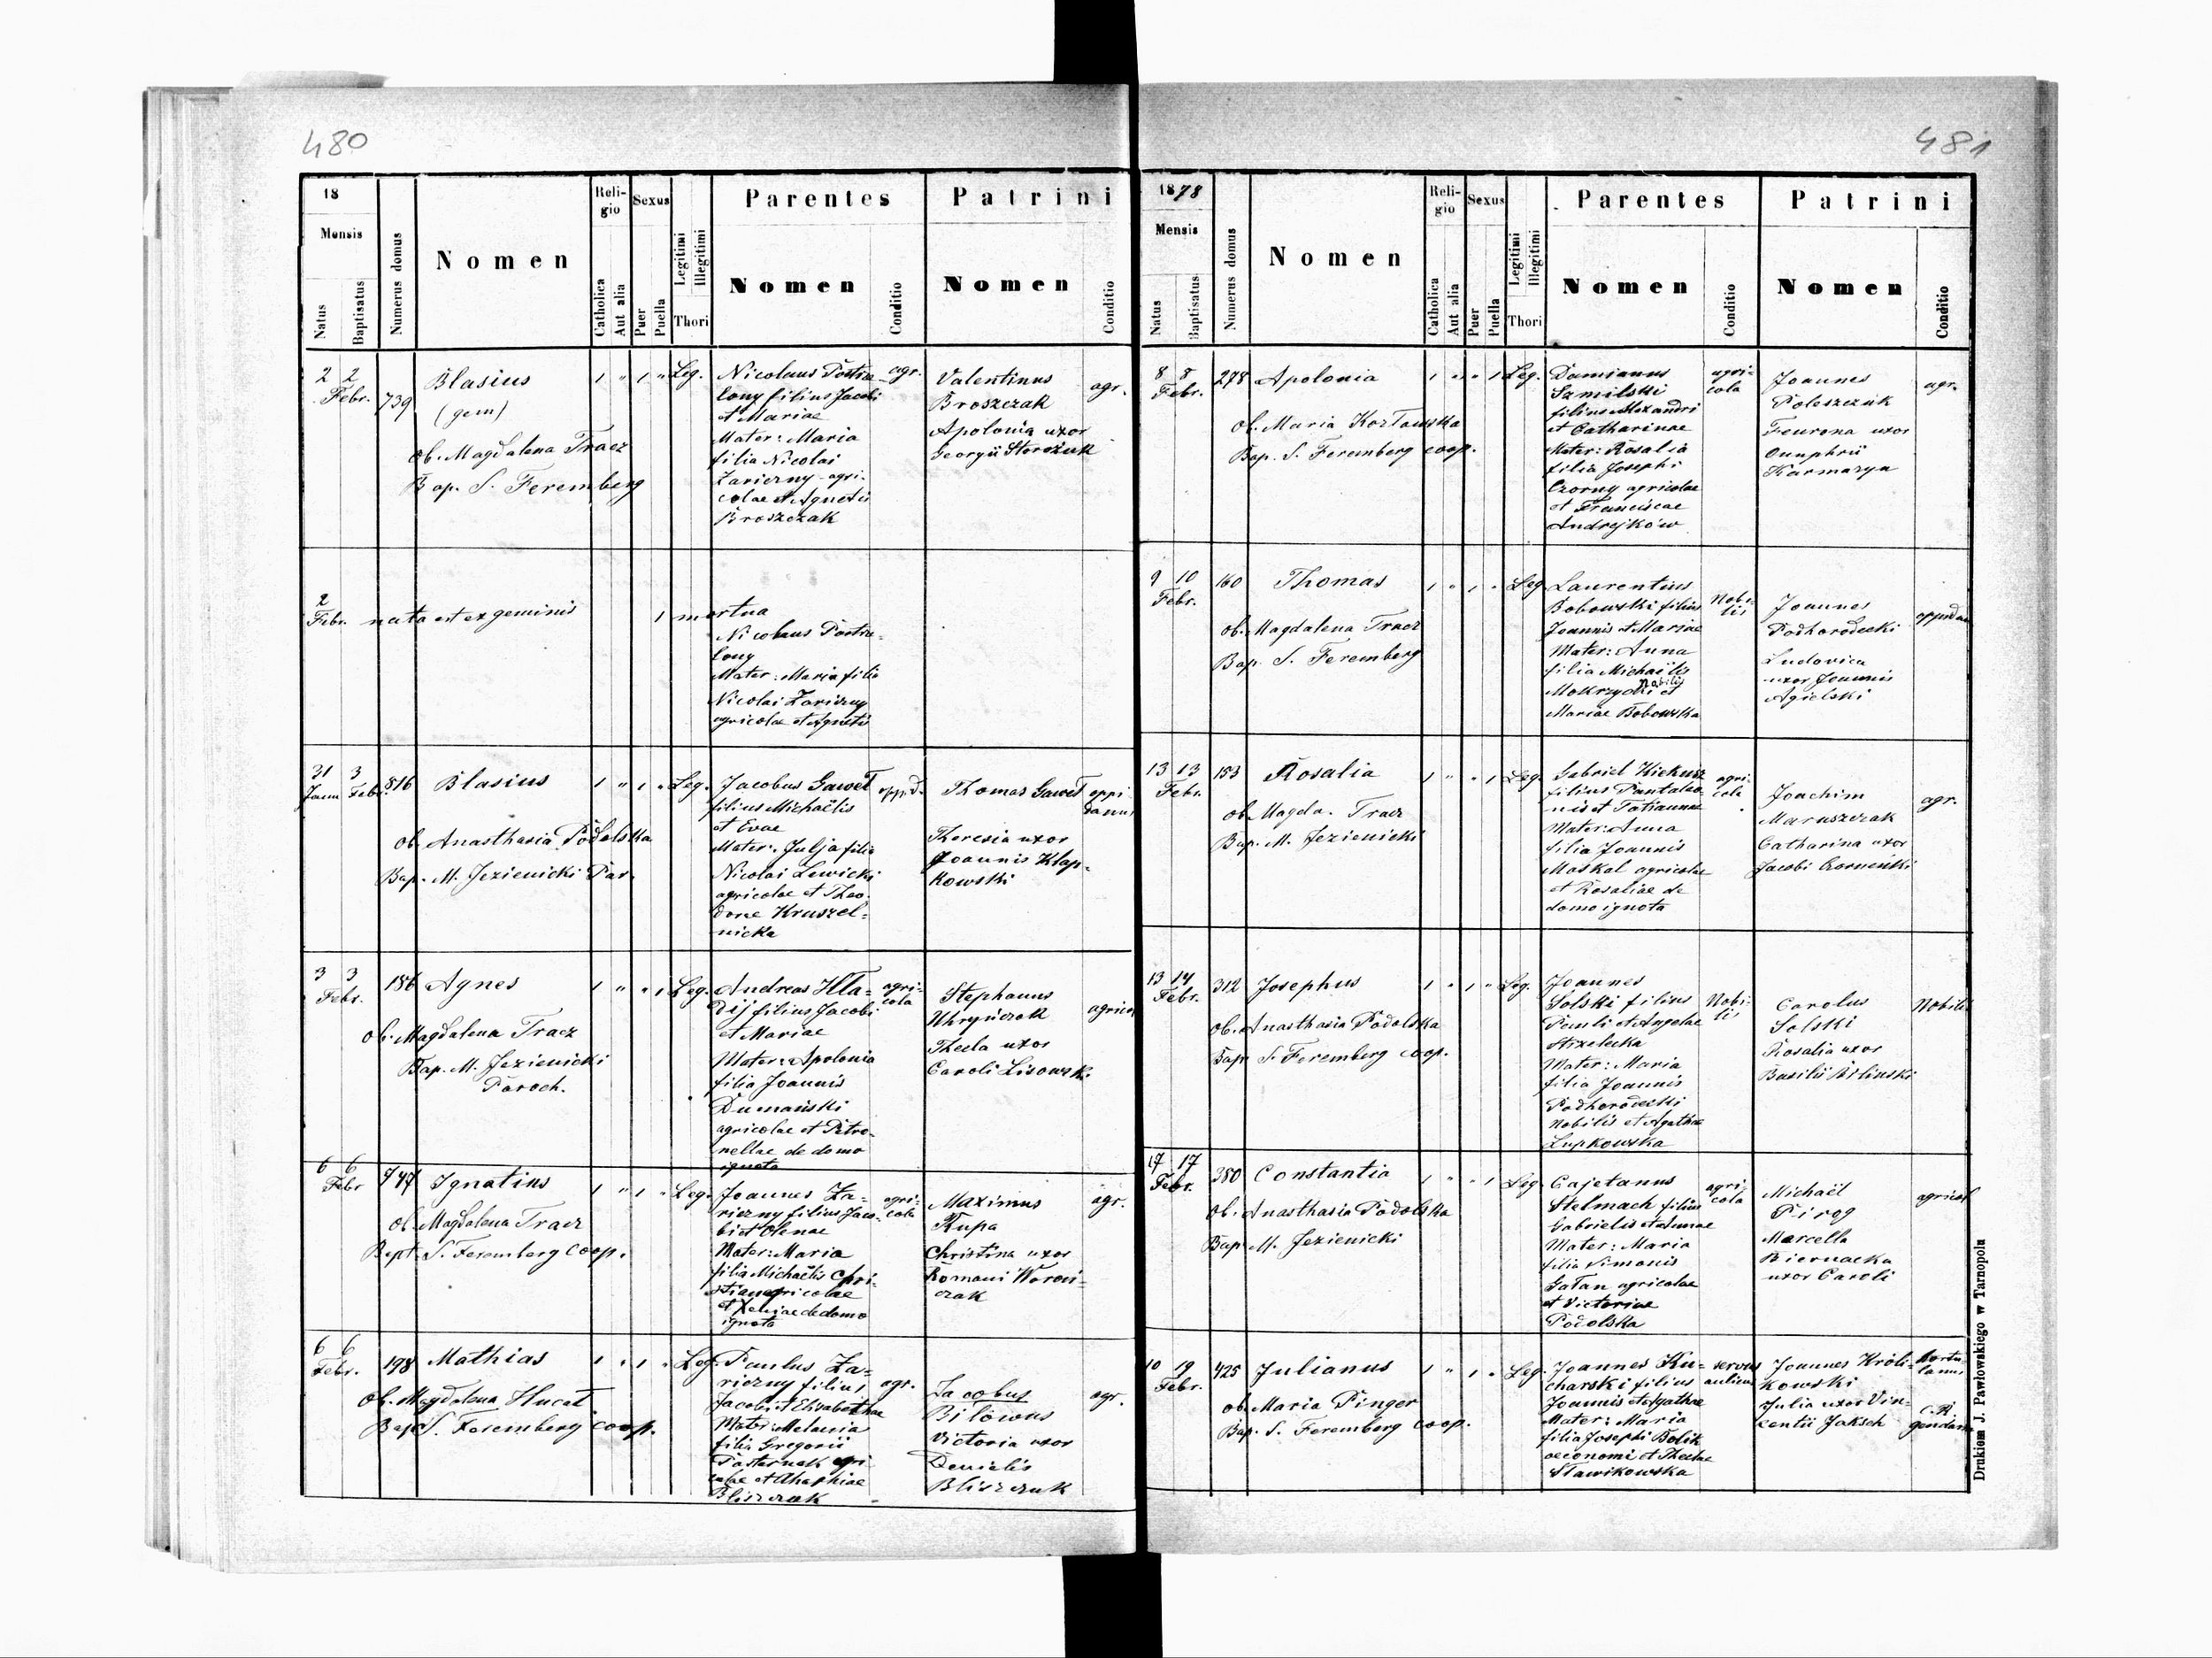 480
18
Mensis
Natus
Baptisatus
Numerus domus
Nomen
Religio
Catholica
Aut alia
Sexus
Puer
Puella
Legitimi
Illegitimi
Thori
Parentes
Nomen
Conditio
Patrini
Nomen
Conditio
2 2
Febr.
739
Blasius
(gem)
ob. Magdalena Tracz
Bap. S. Feremberg
1 " 1 " Leg.
Nicolaus Postro-
lony filius Jacobi
et Mariae
Mater: Maria
filia Nicolai
Zariczny agri-
colae et Agnetis
Broszczak
agr.
Valentinus
Broszczak
Apolonia uxor
Georgii Storożuk
agr.
2
Febr.
nata est ex geminis
1 mortua
Nicolaus
lony
Mater: Maria filia
Nicolai Zariczny
agricolae et Agnetis
31 3
Janu Febr.
816
Blasius
ob. Anasthasia Podolska
Bap. M. Jezienicki Par.
1 " 1 " Leg.
Jacobus Gaweł
filius Michaëlis
et Evae
Mater: Julja filia
Nicolai Lewicki
agricolae et Theo-
dorae Kruszel-
nicka
oppid.
Thomas Gaweł
Theresia uxor
Joannis Klap-
kowski
oppi
danus
3 3
Febr.
186
Agnes
ob. Magdalena Tracz
Bap. M. Jezienicki
Paroch.
1 " " 1 Leg.
Andreas Hła-
dij filius Jacobi
et Mariae
Mater: Apolonia
filia Joannis
Dumański
agricolae et Petro-
nellae de domo
ignota
agri-
cola
Stephanus
Uhryńczak
Thecla uxor
Caroli Lisowsk.
agricol
6 6
Febr
747
Ignatius
ob. Magdalena Tracz
Bapt. S. Feremberg coop.
1 " 1 " Leg.
Joannes Za-
riczny filius Jaco-
bi et Olenae
Mater: Maria
filia Michaëlis Chri-
stian agricolae
et Xeniae de domo
ignota
agri-
cola
Maximus
Kupa
Christina uxor
Romani Woroń-
czak
agr.
6 6
Febr.
198
Mathias
ob. Magdalena Hucał
Bap. S. Feremberg coop.
1 " 1 " Leg.
Paulus Za-
riczny filius
Jacobi et Elisabethae
Mater: Melania
filia Gregorii
Pasternak agri
colae et Ahaphiae
Bliszczak
agr.
Jacobus
Bilowus
Victoria uxor
Danielis
Bliszczuk
agr.
481
1878
Mensis
Natus
Baptisatus
Numerus domus
Nomen
Religio
Catholica
Aut alia
Sexus
Puer
Puella
Legitimi
Illegitimi
Thori
Parentes
Nomen
Conditio
Patrini
Nomen
Conditio
8 8
Febr.
278
Apolonia
ob. Maria Kozłowska
Bap. S. Feremberg coop.
1 " " 1 Leg.
Damianus
Szmilski
filius Alexandri
et Catharinae
Mater: Rosalia
filia Josephi
Czorny agricolae
et Franciscae
Andrejków
agri-
cola
Joannes
Poleszczuk
Feurona uxor
Onuphrii
Karmazyn
agr.
9 10
Febr.
160
Thomas
ob. Magdalena Tracz
Bap. S. Feremberg
1 " 1 " Leg
Laurentius
Bobowski filius
Joannis et Mariae
Mater: Anna
filia Michaëlis
Mokrzycki nobilis et
Mariae Bobowska
Nobi-
lis
Joannes
Podhorodecki
Ludovica
uxor Joannis
Agielski
oppidan
13 13
Febr.
153
Rosalia
ob. Magda. Tracz
Bap. M. Jezienicki
1 " " 1 Leg.
Gabriel Kiekusz
filius Pantaleo-
nis et Tatiannae
Mater: Anna
filia Joannis
Moskal agricolae
et Rosaliae de
domo ignota
agri-
cola
Joachim
Maruszczak
Catharina uxor
Jacobi
agr.
13 14
Febr.
312
Josephus
ob. Anasthasia Podolska
Bap. S. Feremberg coop.
1 " 1 " Leg.
Joannes
Solski filius
Pauli et Angelae
Strzelecka
Mater: Maria
filia Joannis
Podhorodecki
Nobilis et Agathae
Łupkowska
Nobi-
lis
Carolus
Solski
Rosalia uxor
Basilii Bilinski
Nobilis
17 17
Febr.
380
Constantia
ob. Anasthasia Podolska
Bap. M. Jezienicki
1 " " 1 Leg.
Cajetanus
Stelmach filius
Gabrielis et Annae
Mater: Maria
filia Simonis
Gałan agricolae
et Victoriae
Podolska
agri-
cola
Michaël
Pirog
Marcella
Biernacka
uxor Caroli
agricol
10 19
Febr.
425
Julianus
ob. Maria Pinger
Bap. S. Feremberg coop.
1 " 1 " Leg.
Joannes Ku-
charski filius
Joannis et Agathae
Mater: Maria
filia Josephi Bolik
oeconomi et Theclae
Sławikowska
servus
aulicus
Joannes Króli-
kowski
Julia uxor Vin-
centii Jaksch
hortu-
lanus
C.R.
gendarm
Drukiem J. Pawłowskiego w Tarnopolu